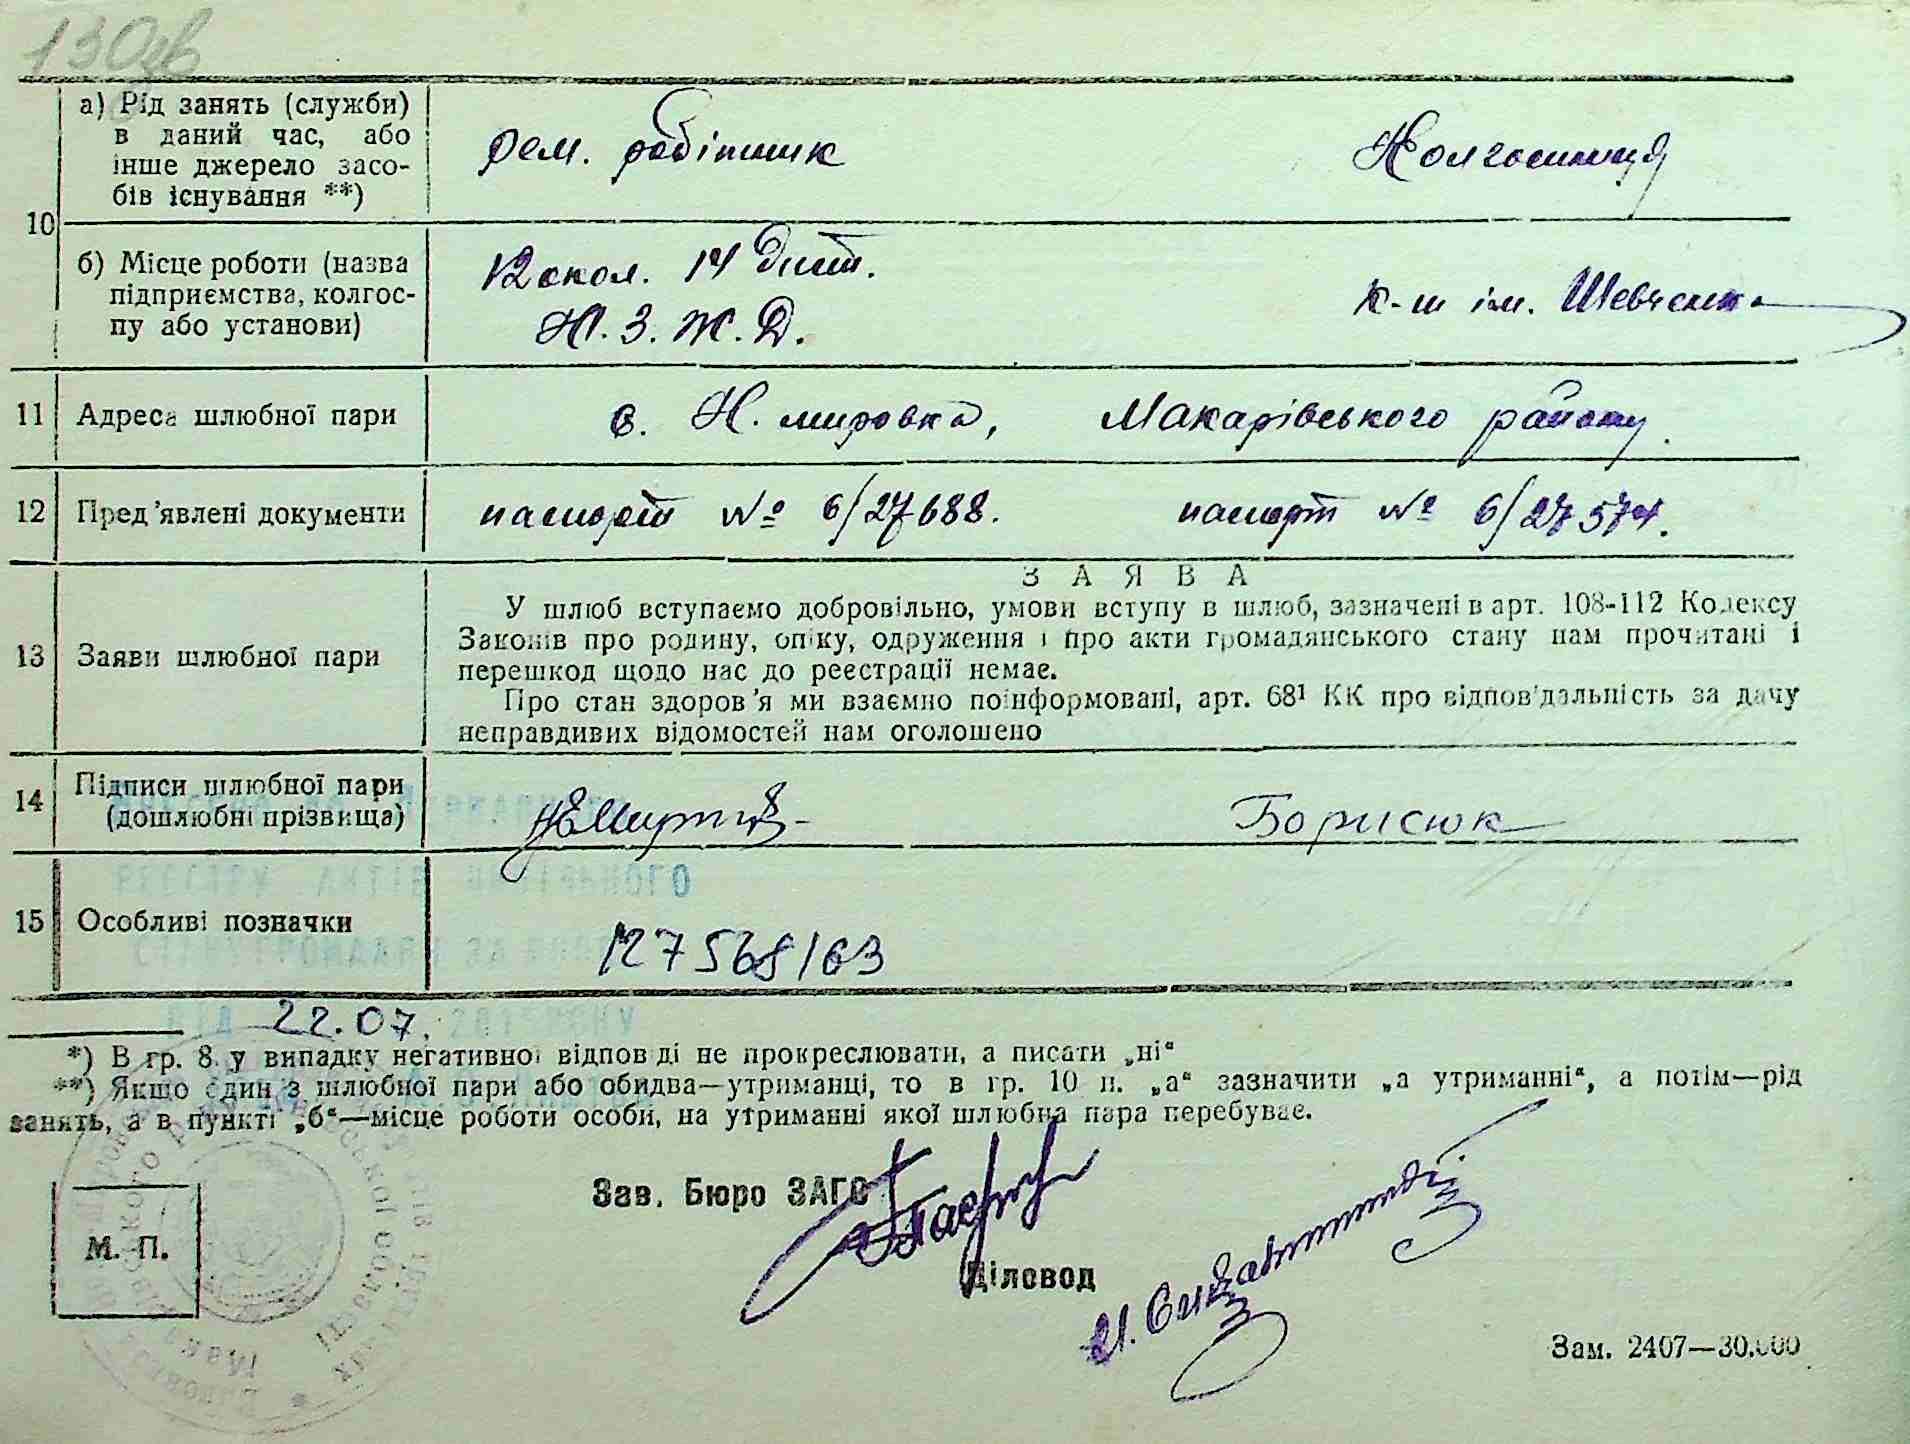 130зв
10
а) Рід занять (служби)
в даний час, або
інше джерело засо-
бів існування **)
рем. робітник
Колгоспниця
б) Місце роботи (назва
підприємства, колгос-
пу або установи)
12 окол. 14 Дист.
Ю. З. Ж. Д.
К-п ім. Шевченка
11 Адреса шлюбної пари
с. Н. мировка, Макарівського району.
12 Пред'явлені документи
паспорт № 6/27688. паспорт № 6/27574.
ЗАЯВА
13 Заяви шлюбної пари
У шлюб вступаємо добровільно, умови вступу в шлюб, зазначені в арт. 108-112 Кодексу
Законів про родину, опіку, одруження і про акти громадянського стану нам прочитані і
перешкод щодо нас до реєстрації немає.
Про стан здоров'я ми взаємно поінформовані, арт. 68¹ КК про відповідальність за дачу
неправдивих відомостей нам оголошено
14 Підписи шлюбної пари
(дошлюбні прізвища)
Борисюк
15 Особливі позначки
127568163
22.07.
*) В гр. 8 у випадку негативної відповіді не прокреслювати, а писати „ні“
**) Якщо один з шлюбної пари або обидва—утриманці, то в гр. 10 п. „а“ зазначити „а утриманні“, а потім—рід
занять, а в пункті „б“—місце роботи особи, на утриманні якої шлюбна пара перебуває.
Зав. Бюро ЗАГС
Діловод
М. П.
Зам. 2407—30.000